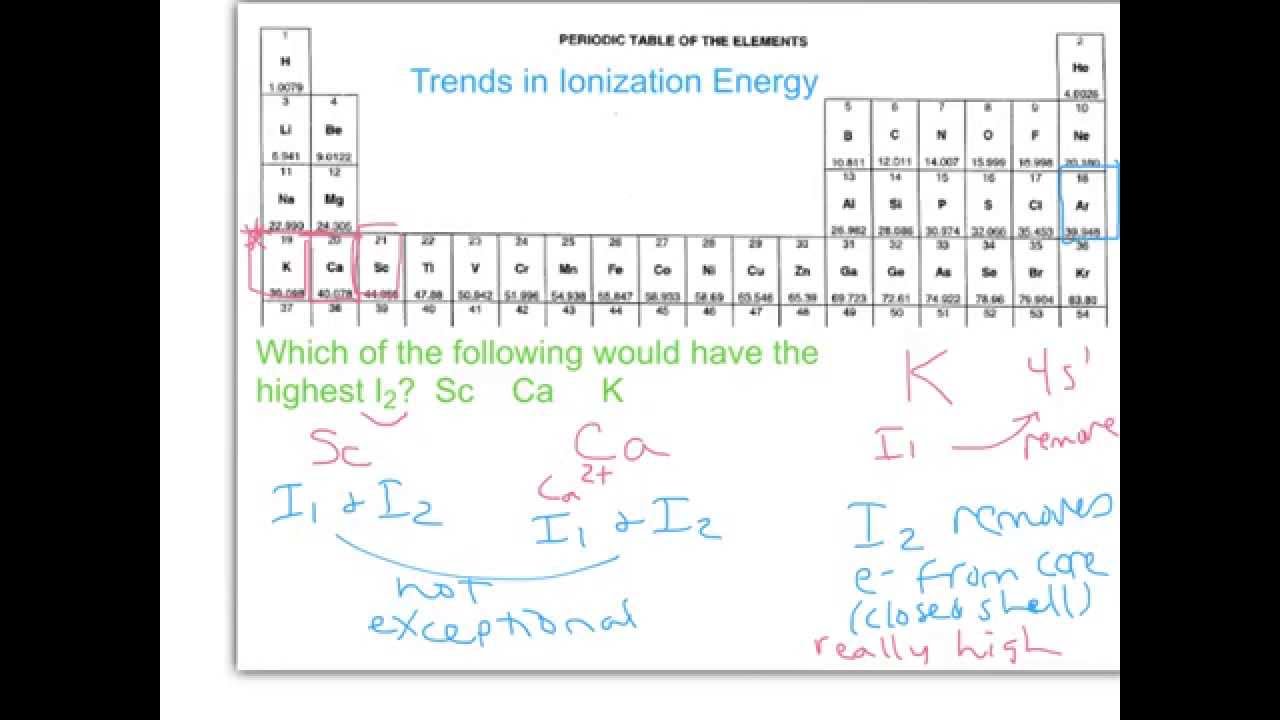 PERIODIC TABLE OF THE ELEMENTS
Trends in Ionization Energy
1 2
H He
1.0079 4.0026
3 4 5 6 7 8 9 10
Li Be B C N O F Ne
6.941 9.0122 10.811 12.011 14.007 15.999 18.998 20.180
11 12 13 14 15 16 17 18
Na Mg Al Si P S Cl Ar
22.990 24.305 26.982 28.086 30.974 32.066 35.453 39.948
19 20 21 22 23 24 25 26 27 28 29 30 31 32 33 34 35 36
K Ca Sc Ti V Cr Mn Fe Co Ni Cu Zn Ga Ge As Se Br Kr
39.098 40.078 44.956 47.88 50.942 51.996 54.938 55.847 58.933 58.69 63.546 65.39 69.723 72.61 74.922 78.96 79.904 83.80
37 38 39 40 41 42 43 44 45 46 47 48 49 50 51 52 53 54
Which of the following would have the
highest I₂? Sc Ca K
Sc
I₁ & I₂
Ca
Ca²⁺
I₁ & I₂
not
exceptional
K 4s¹
I₁ remove
I₂ removes
e- from core
(closed shell)
really high